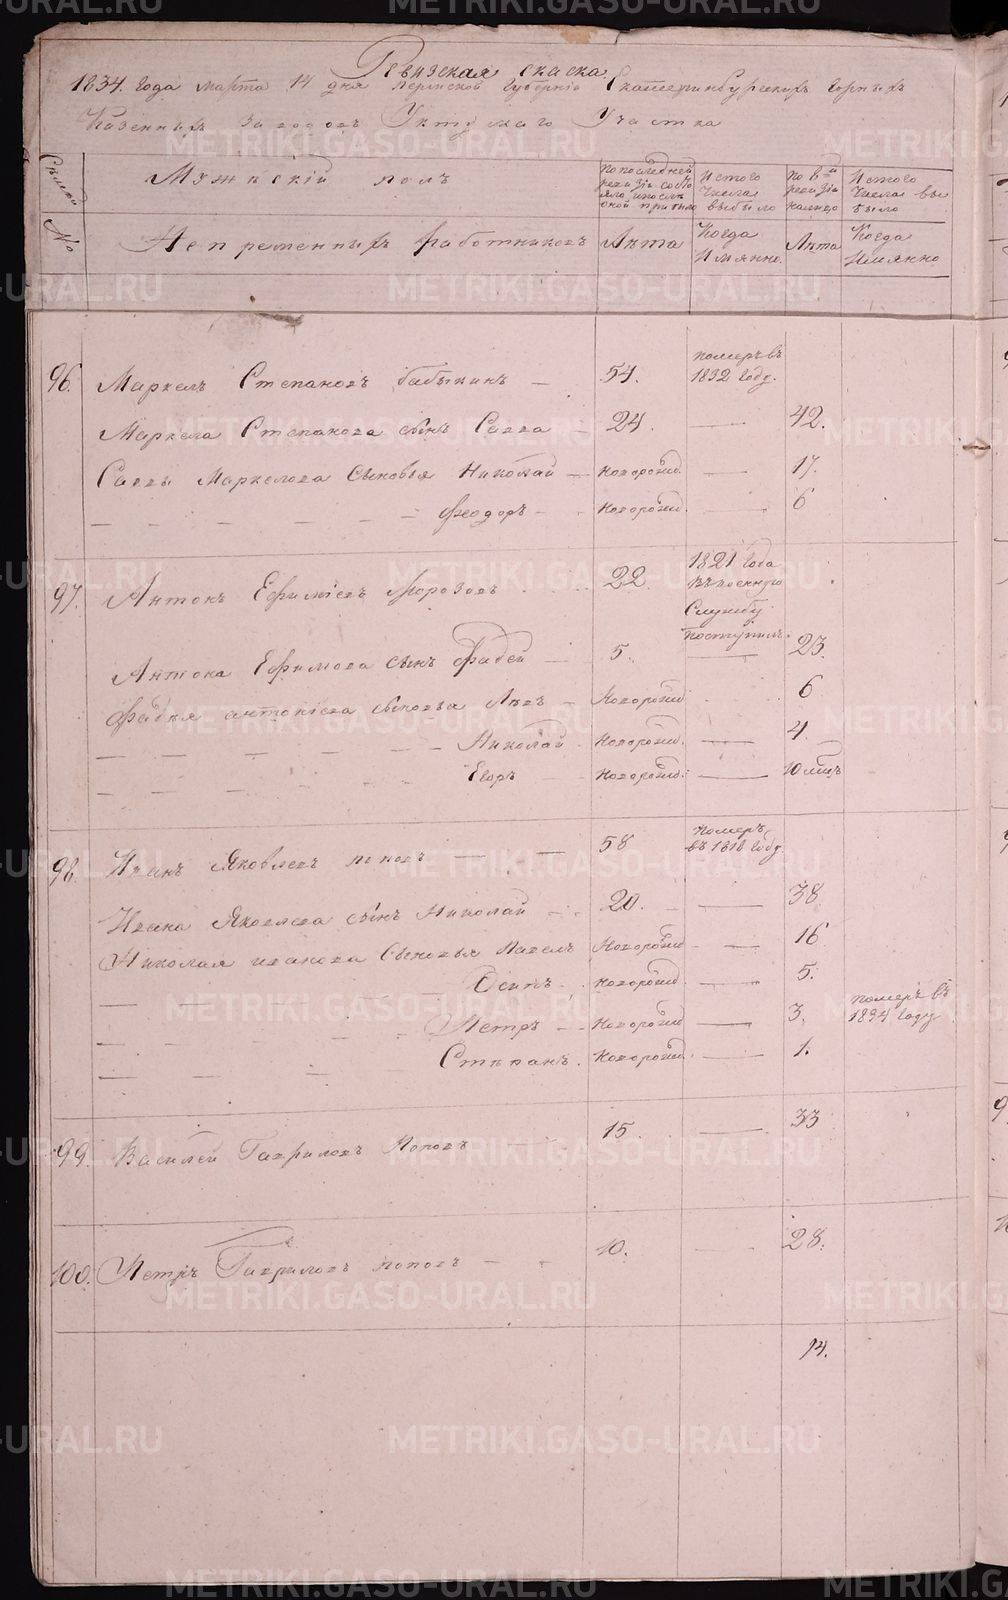 Ревизская скаска
1834. года марта 14 дня Пермской Губернiи Екатеринбургскихъ Горныхъ
Казенныхъ заводовъ Уктускаго Участка
Семьи №
Мужескiй полъ
По последней ревизiи состояло и после оной прибыло
Из того числа выбыло
По 8й ревизiи налицо
Из того числа выбыло
Непременныхъ работниковъ
Лѣта
Когда Имянно.
Лѣта
Когда Имянно
96. Маркелъ Степановъ бабыкинъ — 54. померъ въ 1832 году.
Маркела Степанова сынъ Савва — 24. — 42.
Саввы Маркелова сыновья Николай — новорожд. — 17.
Феодоръ — новорожд. — 6
97. Антонъ Ефимiевъ Морозовъ 22 1821 года въ военную службу поступилъ.
Антона Ефимова сынъ Фадей — 5. — 23.
Фадея антонiева сыновья Левъ — новорожд. 6
Николай — новорожд. — 4.
Егоръ — новорожд. — 10 мцъ
98. Иванъ Яковлевъ поповъ — — 58 померъ въ 1818 году.
Ивана Яковлева сынъ Николай — 20. — 38.
Николая иванова сыновья Павелъ новорожд — 16
Осипъ — новорожд. — 5.
Петръ — новорожд — 3. померъ въ 1834 году
Степанъ. новорожд. — 1.
99 Василей Гавриловъ Поповъ 15 — 33
100. Петръ Гавриловъ поповъ — 10. — 28.
14.
METRIKI.GASO-URAL.RU